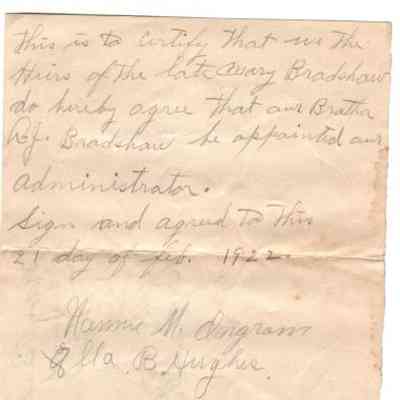 this is to certify that we the
Heirs of the late Mary Bradshaw
do hereby agree that our Brother
A.J. Bradshaw be appointed our
administrator.
Sign and agreed to this
21 day of feb. 1922.
Nannie M. Ingram
Ella B. Hughes